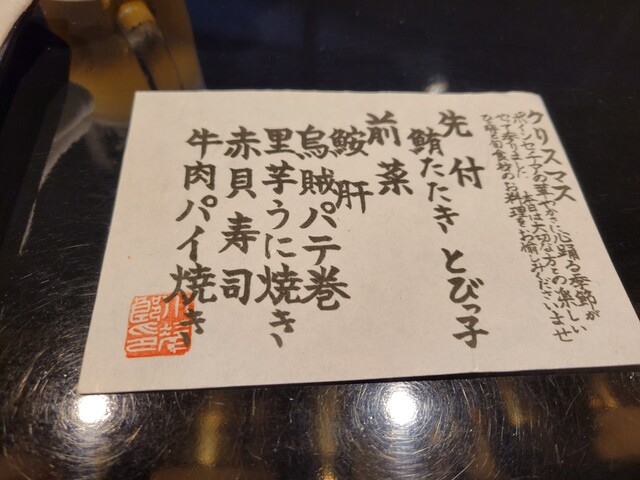 クリスマス
ポインセチアの華やかさに心踊る季節が
やって参りました 本日は大切な方との楽しい
ひと時と旬食材のお料理をお愉しみくださいませ
先付
鮪たたき とびっ子
前菜
鮟肝
烏賊パテ巻
里芋うに焼き
赤貝寿司
牛肉パイ焼き